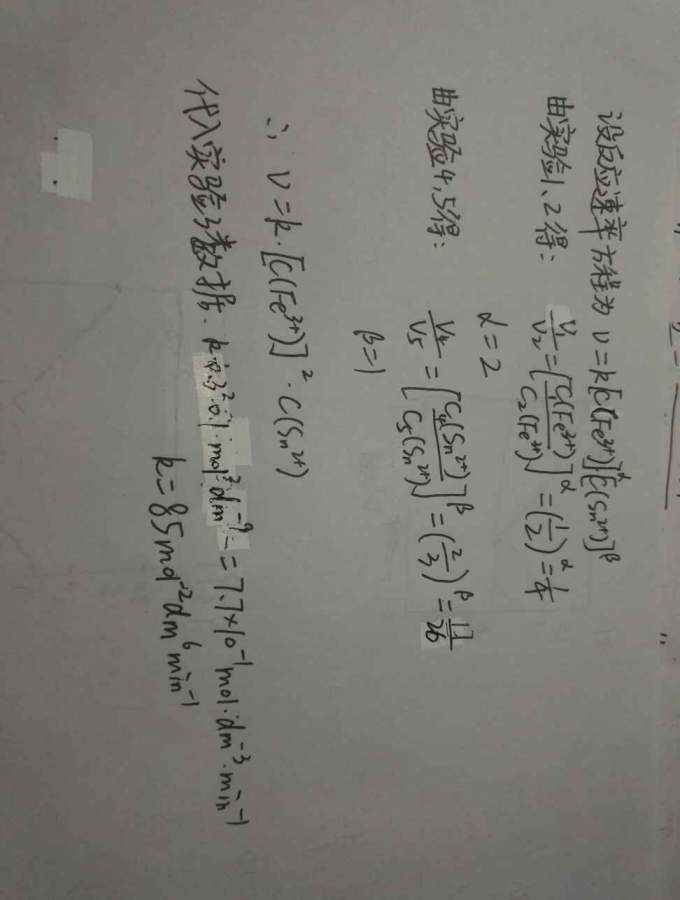 设反应速率方程为 v=k[C(Fe³⁺)]^α[C(Sn²⁺)]^β
由实验1、2得: v₁/v₂=[C₁(Fe³⁺)/C₂(Fe³⁺)]^α=(1/2)^α=1/4
α=2
由实验4,5得: v₄/v₅=[C₄(Sn²⁺)/C₅(Sn²⁺)]^β=(2/3)^β=17/26
β=1
∴ v=k·[C(Fe³⁺)]²·C(Sn²⁺)
代入实验3数据. k·0.3²·0.1·mol³dm⁻⁹=7.7×10⁻¹mol·dm⁻³·min⁻¹
k=85mol⁻²dm⁶min⁻¹